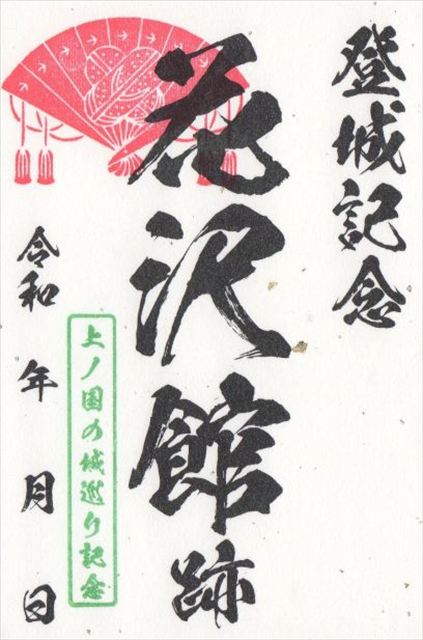 登城記念
花沢館跡
上ノ国の城巡り記念
令和 年 月 日